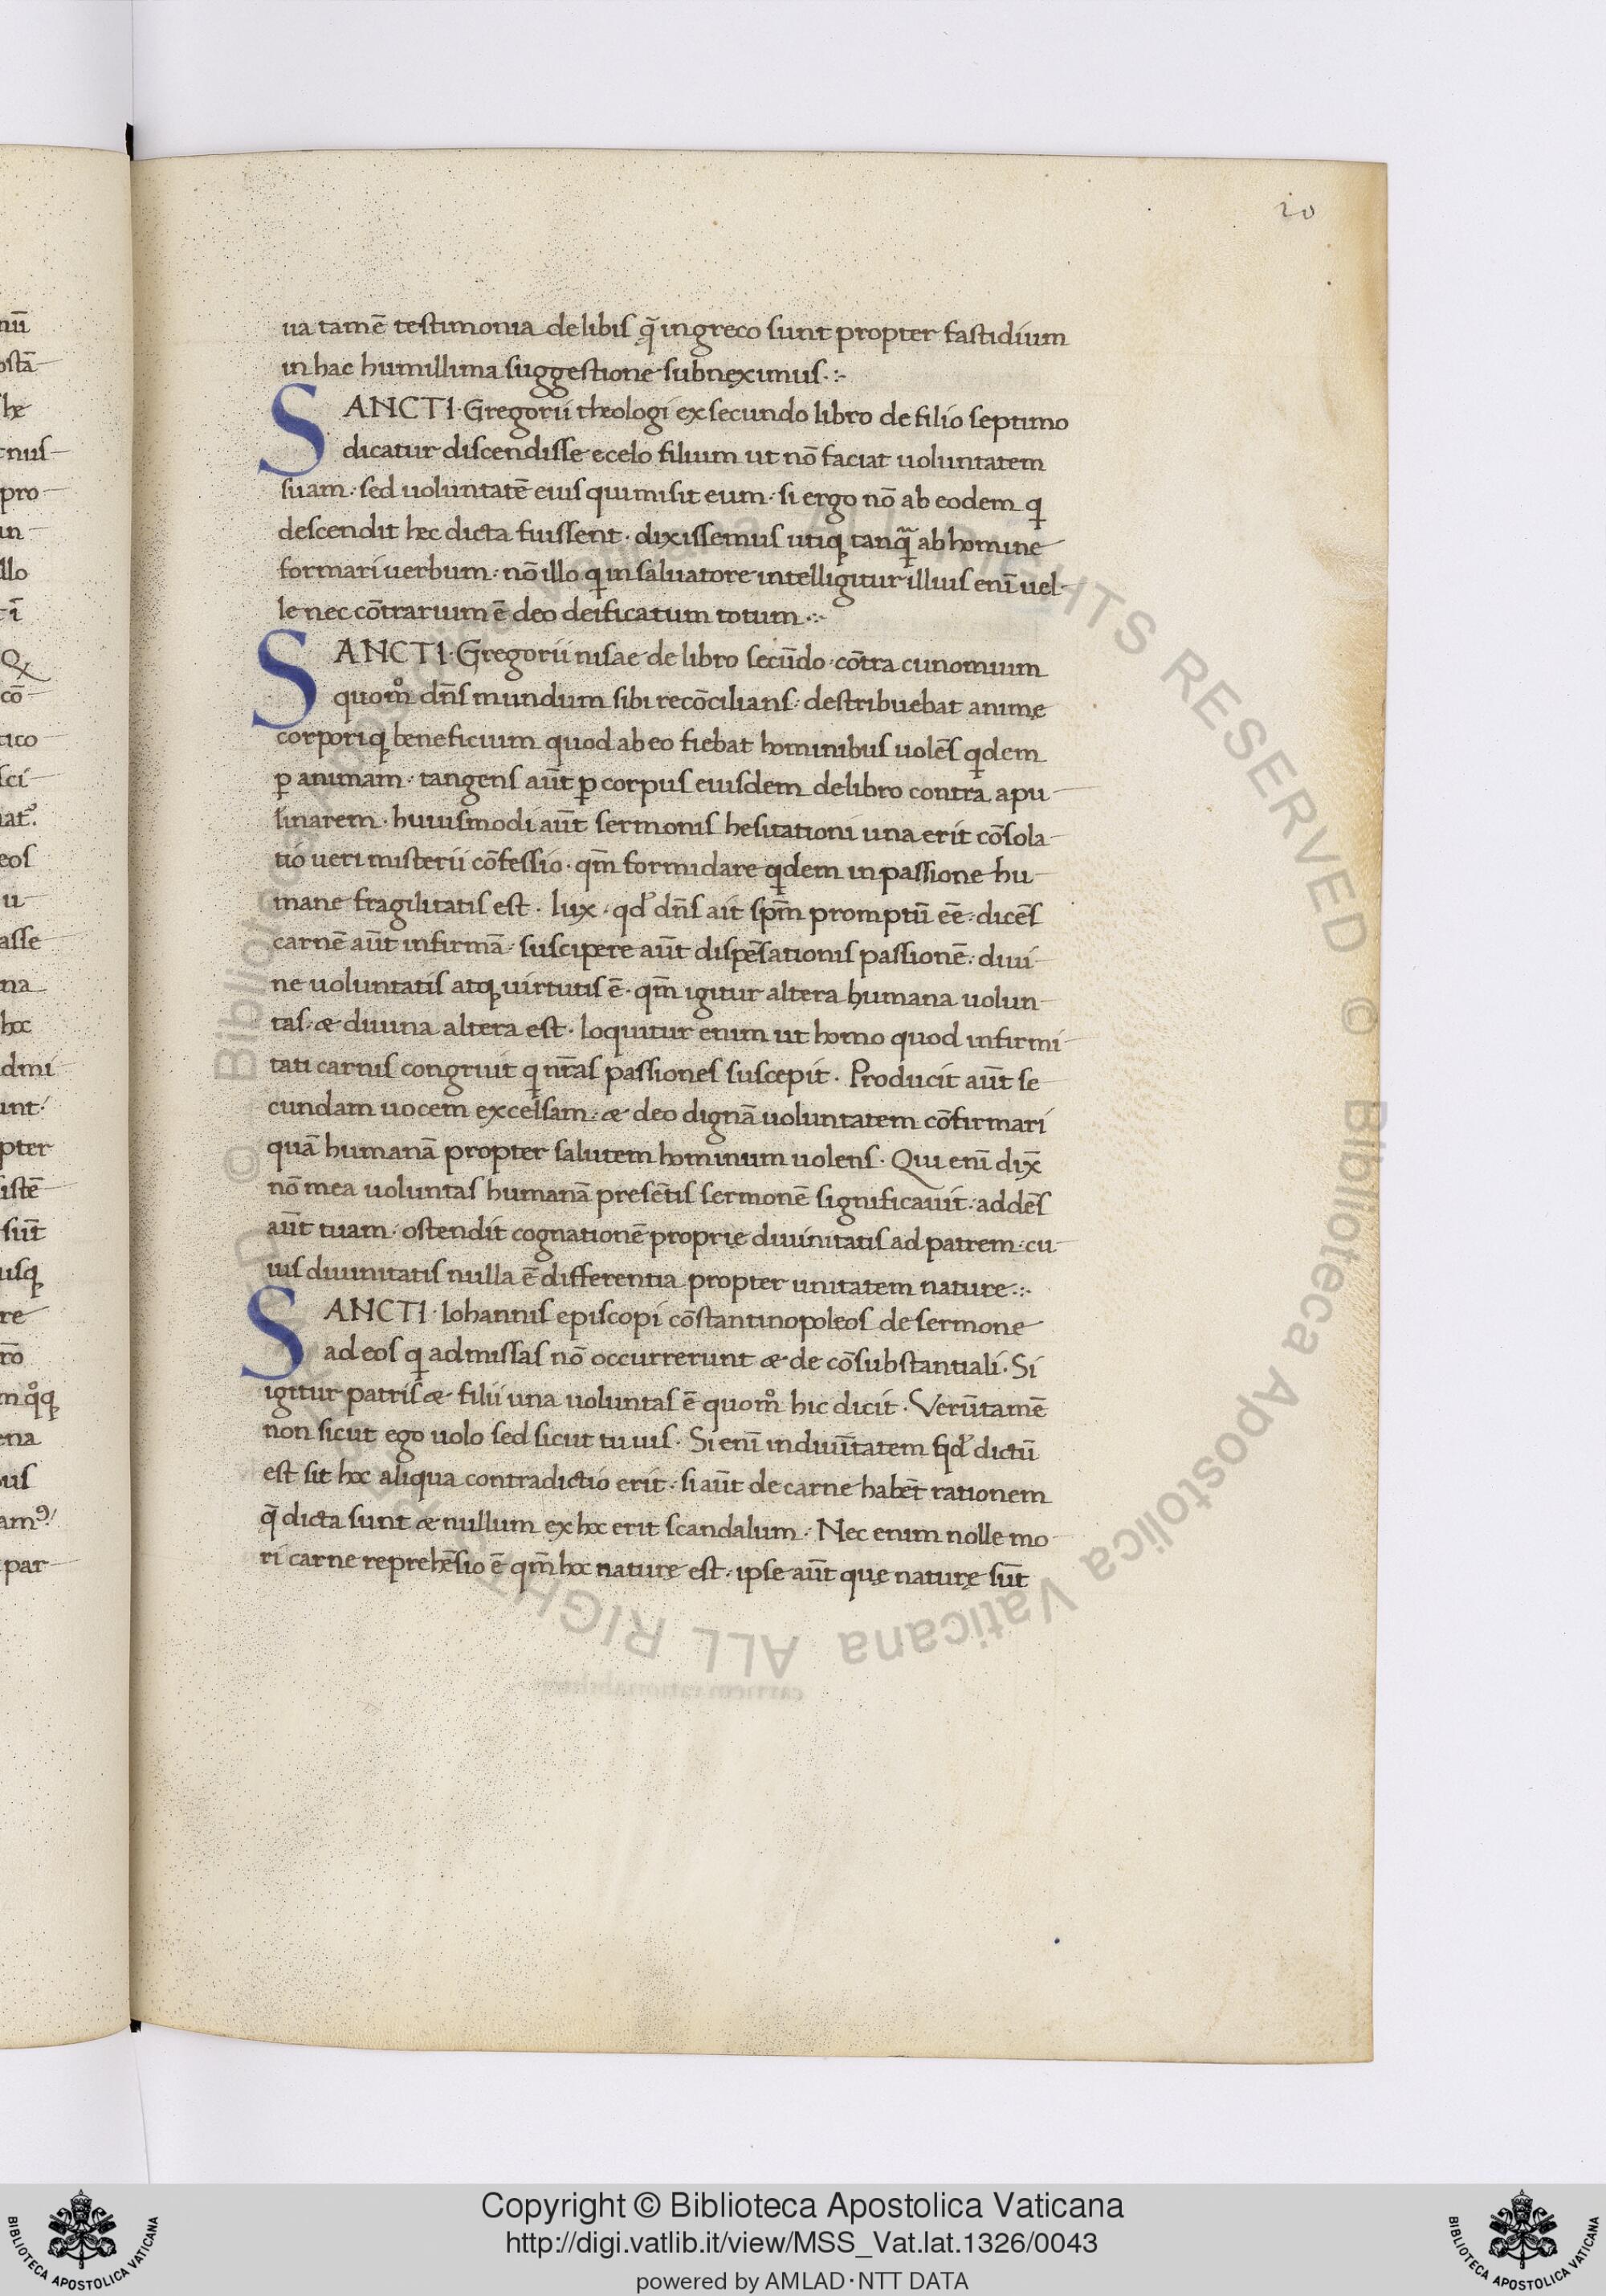 20
ua tamē testimonia de libis q̄ in greco sunt propter fastidium
in hac humillima suggestione subnęximus.:~
SANCTI. Gregorii theologi ex secundo libro de filio septimo
dicatur discendisse e celo filium ut nō faciat uoluntatem
suam: sed uoluntatē eius qui misit eum: si ergo nō ab eodem q
descendit hec dicta fuissent. dixissemus utiq tanq̄ ab homine
formari uerbum: nō illo q in saluatore intelligitur illius enī uel
le nec cōtrarium ē deo deificatum totum.:~
SANCTI. Gregorii nisae de libro secūdo cōtra cunomium
quom̊ dn̄s mundum sibi recōcilians: destribuebat animę
corporiq beneficium quod ab eo fiebat hominibus uolēs qdem
ꝑ animam. tangens aūt ꝑ corpus eiusdem de libro contra apu
linarem. huiusmodi aūt sermonis hesitationi una erit cōsola
tio ueri misterii cōfessio. qm̄ formidare qdem in passione hu
mane fragilitatis est. lux. qd' dn̄s ait spm̄ promptū eē: dicēs
carnē aūt infirmā: suscipere aūt dispēsationis passionē: diui
ne uoluntatis atq uirtutis ē. qm̄ igitur altera humana uolun
tas: æ diuina altera est. loquitur enim ut homo quod infirmi
tati carnis congruit q nr̄as passiones suscepit. Producit aūt se
cundam uocem excelsam: æ deo dignā uoluntatem cōfirmari
quā humanā propter salutem hominum uolens. Qui enī dix̄
nō mea uoluntas humanā presētis sermonē significauit: addēs
aūt tuam: ostendit cognationē proprię diuinitatis ad patrem: cu
ius diuinitatis nulla ē differentia propter unitatem nature.:~
SANCTI. Iohannis episcopi cōstantinopoleos de sermone
ad eos q ad missas nō occurrerunt æ de cōsubstantiali. Si
igitur patris æ filii una uoluntas ē quom̊ hic dicit. Verūtamē
non sicut ego uolo sed sicut tu uis. Si enī in diuītatem sqd' dictū
est sit hoc aliqua contradictio erit: si aūt de carne habēt rationem
q̄ dicta sunt æ nullum ex hoc erit scandalum: Nec enim nolle mo
ri carne reprehēsio ē qm̄ hoc naturę est: ipse aūt quę naturę sūt
Copyright © Biblioteca Apostolica Vaticana
http://digi.vatlib.it/view/MSS_Vat.lat.1326/0043
powered by AMLAD·NTT DATA